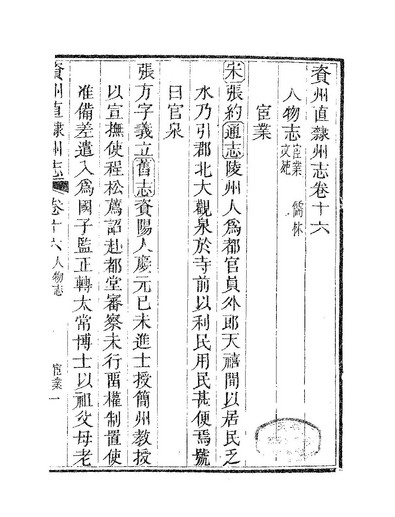 資州直隸州志卷十六
人物志宦業 儒林
文苑
宦業
宋張約通志陵州人為都官員外郎天禧間以居民乏
水乃引郡北大觀泉於寺前以利民用民甚便焉號
曰官泉
張方字義立舊志資陽人慶元己未進士授簡州教授
以宣撫使程松薦詔赴都堂審察未行畱權制置使
准備差遣入為國子監正轉太常博士以祖父母老
資州直隸州志 卷十六 人物志 宦業 一